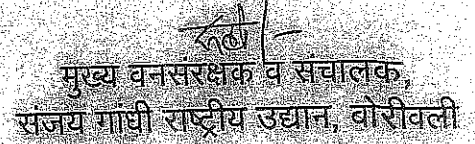 सही/-
मुख्य वनसंरक्षक व संचालक,
संजय गांधी राष्ट्रीय उद्यान, बोरीवली